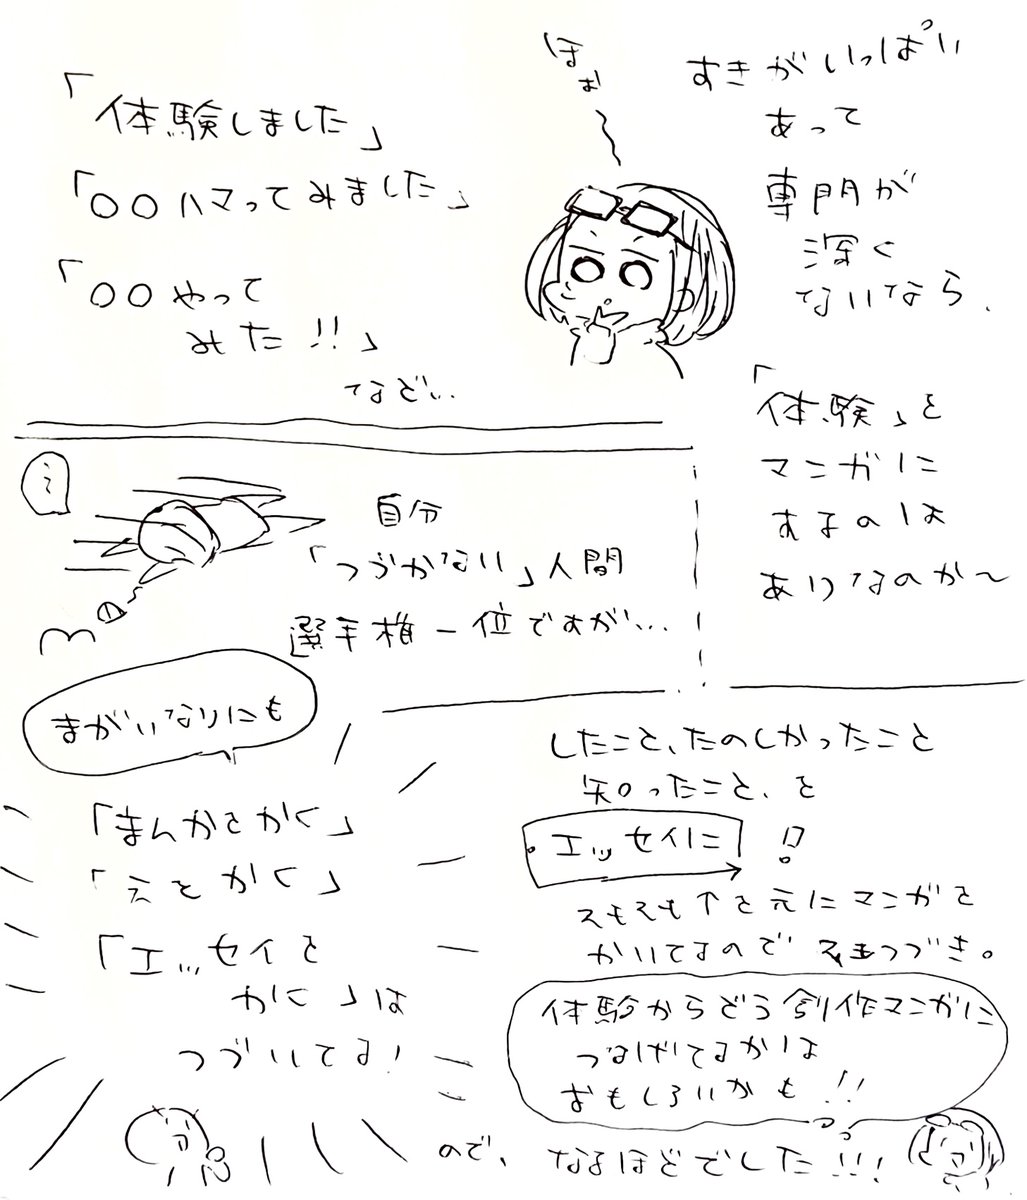 すきがいっぱい
あって
専門が
深く
ないなら、
「体験」を
マンガに
するのは
ありなのか〜
ほぉ
「体験しました」
「〇〇ハマってみました」
「〇〇やって
みた!!」
など…
自分
「つづかない」人間
選手権一位ですが…
まがいなりにも
「まんがをかく」
「えをかく」
「エッセイを
かく」は
つづいてる!
したこと、たのしかったこと
知ったこと、を
エッセイに!?
そもそも↑を元にマンガを
かいてるので
つづき。
体験からどう創作マンガに
つなげてるかは
おもしろいかも!!
ので、なるほどでした!!!